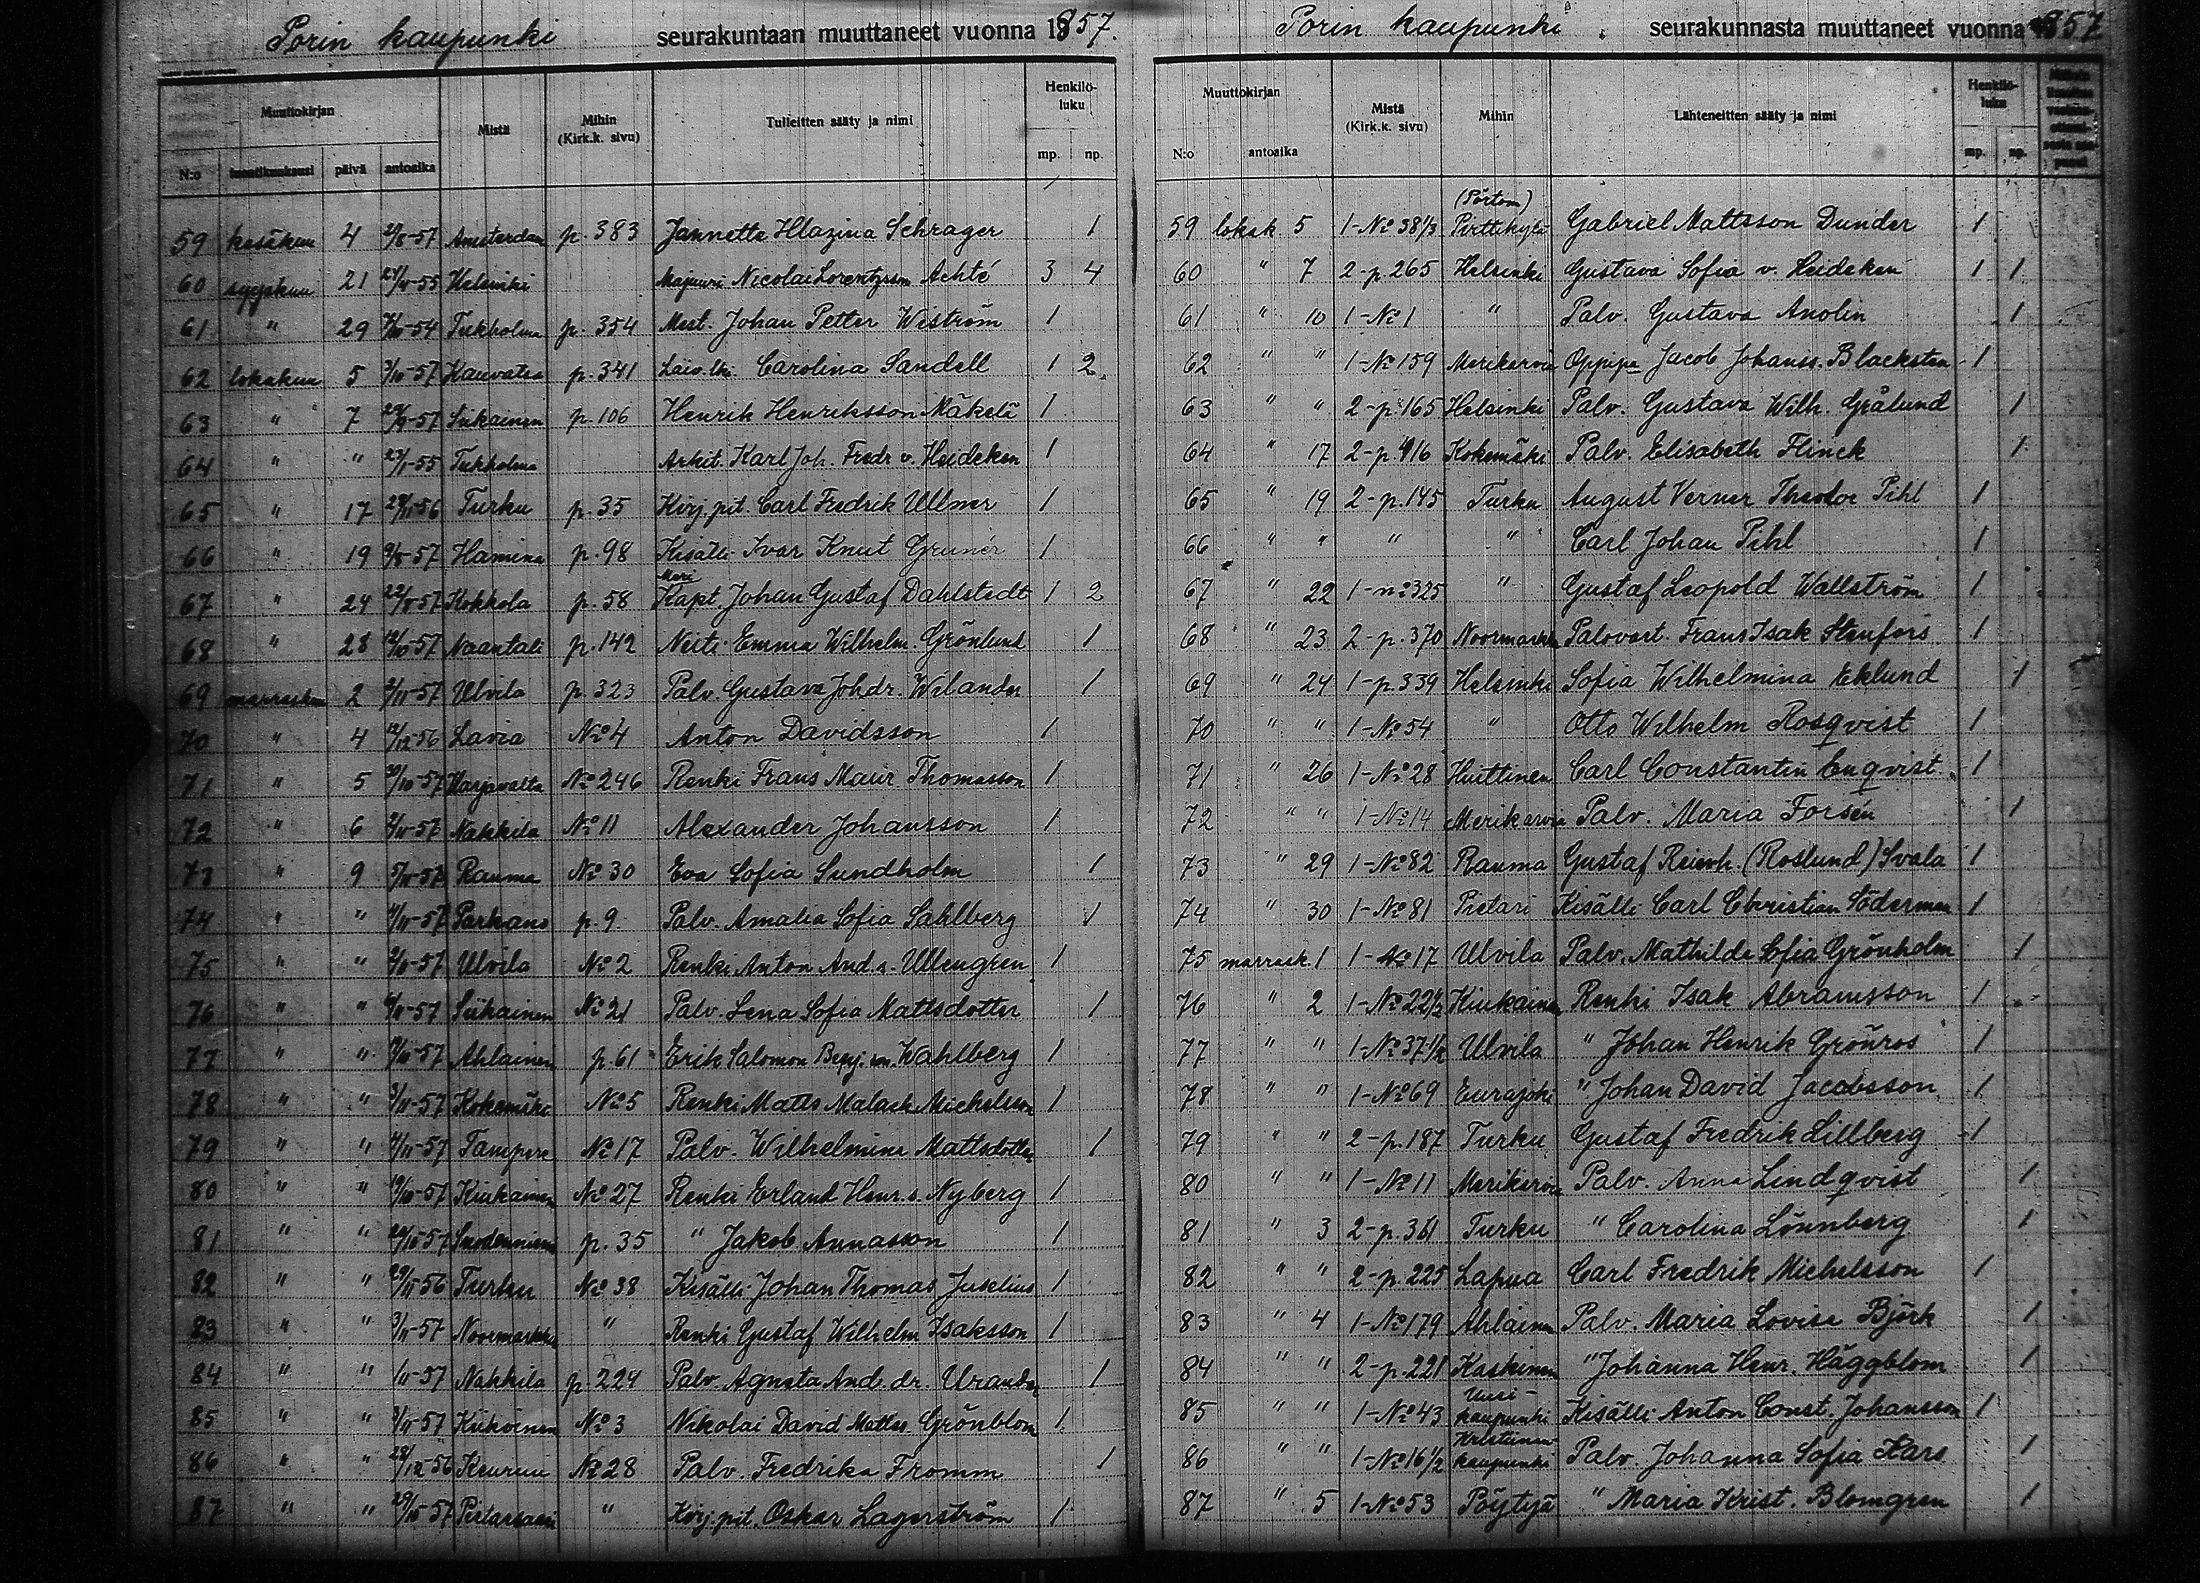 Porin kaupunki seurakuntaan muuttaneet vuonna 1857.
Muuttokirjan Mistä Mihin (Kirk.k. sivu) Tulleitten sääty ja nimi Henkilö-luku
N:o kuukausi päivä antoaika mp. np.
59 kesäkuu 4 2/8-57 Amsterdam p. 383 Jannette Hlazina Schrager 1
60 syyskuu 21 Helsinki Majuuri Nicolai Lorentzson Achté 3 4
61 " 29 Tukholma p. 354 Mest. Johan Petter Wiström 1
62 lokakuu 5 3/10-57 Kauvatsa p. 341 Laiv.lki Carolina Sandell 1 2
63 " 7 29/9-57 Siikainen p. 106 Henrik Henriksson Mäkelä 1
64 " " Tukholma Arkit. Karl Joh. Fredr v. Heideken 1
65 " 17 Turku p. 35 Kirj.pit. Carl Fredrik Ullner 1
66 " 19 Hamina p. 98 Kisälli Ivar Knut Grunér 1
67 " 24 Kokkola p. 58 Meri Kapt. Johan Gustaf Dahlstedt 1 2
68 " 28 12/10-57 Naantali p. 142 Neiti Emma Wilhelm. Grönlund 1
69 marraskuu 2 2/11-57 Ulvila p. 323 Palv. Gustava Johdr. Wilander 1
70 " 4 Lavia No 4 Anton Davidsson 1
71 " 5 30/10-57 Harjavalta No 246 Renki Frans Maur Thomasson 1
72 " 6 Nakkila No 11 Alexander Johansson 1
73 " 9 5/11-57 Rauma No 30 Eva Sofia Sundholm 1
74 " " Parkano p. 9. Palv. Amalia Sofia Sahlberg 1
75 " " Ulvila No 2 Renki Anton And.s. Ullengren 1
76 " " Siikainen No 21 Palv. Lena Sofia Mattsdotter 1
77 " " Ahlainen p. 61 Erik Salomon Benj.son. Wahlberg 1
78 " " 3/11-57 Kokemäki No 5 Renki Matts Malach Michelsson 1
79 " " 4/11-57 Tampere No 17 Palv. Wilhelmina Mattsdotter 1
80 " " 19/10-57 Kiukainen No 27 Renki Erland Henr.s. Nyberg 1
81 " " 29/10-57 Suodenniemi p. 35 " Jakob Annasson 1
82 " " Turku No 38 Kisälli Johan Thomas Juselius 1
83 " " 3/11-57 Noormarkku " Renki Gustaf Wilhelm Isaksson 1
84 " " Nakkila p 224 Palv. Agneta And. dr. 1
85 " " Kiikoinen No 3 Nikolai David Mattss. Grönblom 1
86 " " 28/12-56 Keuruu No 28 Palv. Fredrika Fromm 1
87 " " 29/10-57 Pietarsaari " Kirj.pit. Oskar Lagerström 1
Porin kaupunki seurakunnasta muuttaneet vuonna 1857
Muuttokirjan Mistä (Kirk.k. sivu) Mihin Lähteneitten sääty ja nimi Henkilö-luku
N:o antoaika mp. np.
59 lokak 5 1-No 38 1/3 (Pörtom) Pirttikylä Gabriel Mattsson Dunder 1
60 " 7 2-p. 265 Helsinki Gustava Sofia v. Heideken 1 1
61 " 10 1-No 1 " Palv. Gustava Anolin 1
62 " " 1-No 159 Merikarvia Oppipa Jacob Johanss. Blacksten 1
63 " " 2-p. 165 Helsinki Palv. Gustava Wilh. Grålund 1
64 " 17 2-p. 416 Kokemäki Palv. Elisabeth Flinck 1
65 " 19 2-p. 145 Turku August Verner Theodor Pihl 1
66 " " " " Carl Johan Pihl 1
67 " 22 1-no 325 " Gustaf Leopold Wallström 1
68 " 23 2-p. 370 Noormarkku Palovart. Frans Isak Stenfors 1
69 " 24 1-p 339 Helsinki Sofia Wilhelmina Eklund 1
70 " " 1-No 54 " Otto Wilhelm Rosqvist 1
71 " 26 1-No 28 Huittinen Carl Constantin Enqvist 1
72 " " 1-No 14 Merikarvia Palv. Maria Forsén 1
73 " 29 1-No 82 Rauma Gustaf Reinh. (Roslund) Svala 1
74 " 30 1-No 81 Pietari Kisälli Carl Christian Söderman 1
75 marrask. 1 1-No 17 Ulvila Palv. Mathilda Sofia Grönholm 1
76 " 2 1-No 22 1/2 Kiukainen Renki Isak Abramsson 1
77 " " 1-No 37 1/2 Ulvila " Johan Henrik Grönros 1
78 " " 1-No 69 Eurajoki " Johan David Jacobsson 1
79 " " 2-p. 187 Turku Gustaf Fredrik Lillberg 1
80 " " 1-No 11 Merikarvia Palv. Anna Lindqvist 1
81 " 3 2-p. 361 Turku " Carolina Lönnberg 1
82 " " 2-p. 225 Lapua Carl Fredrik Michelsson 1
83 " 4 1-No 179 Ahlainen Palv. Maria Lovisa Björk 1
84 " " 2-p. 221 Kaskinen " Johanna Henr. Häggblom 1
85 " " 1-No 43 Uusi-kaupunki Kisälli Anton Const. Johansson 1
86 " " 1-No 16 1/2 Kristiinan-kaupunki Palv. Johanna Sofia Kars 1
87 " 5 1-No 53 Pöytyä " Maria Krist. Blomgren 1